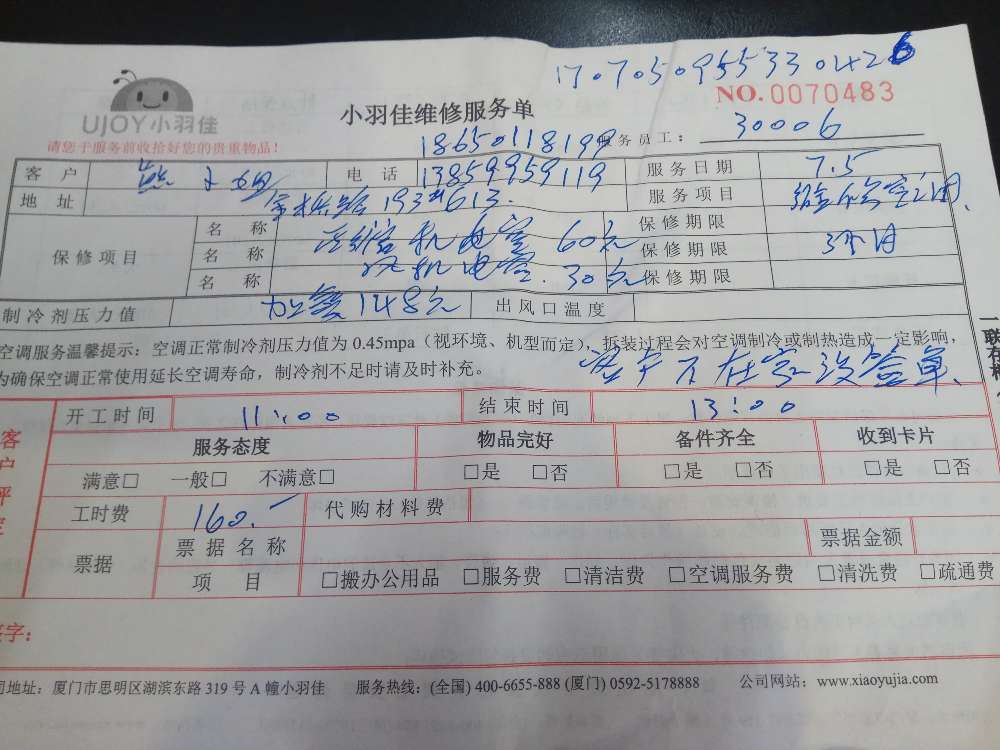 1707050955330426
NO. 0070483
UJOY小羽佳
小羽佳维修服务单
请您于服务前收拾好您的贵重物品！
18650118199 服务员工： 30006
客 户 电 话 13859959119 服务日期 7.5
地 址 193#613. 服务项目
保修项目
名 称 压缩机电容 60元 保修期限
名 称 风机电容. 30元 保修期限 3个月
名 称 保修期限
制冷剂压力值 加氟148元 出风口温度
空调服务温馨提示：空调正常制冷剂压力值为 0.45mpa（视环境、机型而定），拆装过程会对空调制冷或制热造成一定影响，
为确保空调正常使用延长空调寿命，制冷剂不足时请及时补充。
客户不在家没签单、
开工时间 11:00 结束时间 13:00
服务态度 物品完好 备件齐全 收到卡片
满意□ 一般□ 不满意□ □是 □否 □是 □否 □是 □否
工时费 160.- 代购材料费
票据 票据名称 票据金额
项 目 □搬办公用品 □服务费 □清洁费 □空调服务费 □清洗费 □疏通费
签字：
司地址：厦门市思明区湖滨东路 319 号 A 幢小羽佳 服务热线：(全国) 400-6655-888 (厦门) 0592-5178888 公司网站：www.xiaoyujia.com
客户评定
一联存根